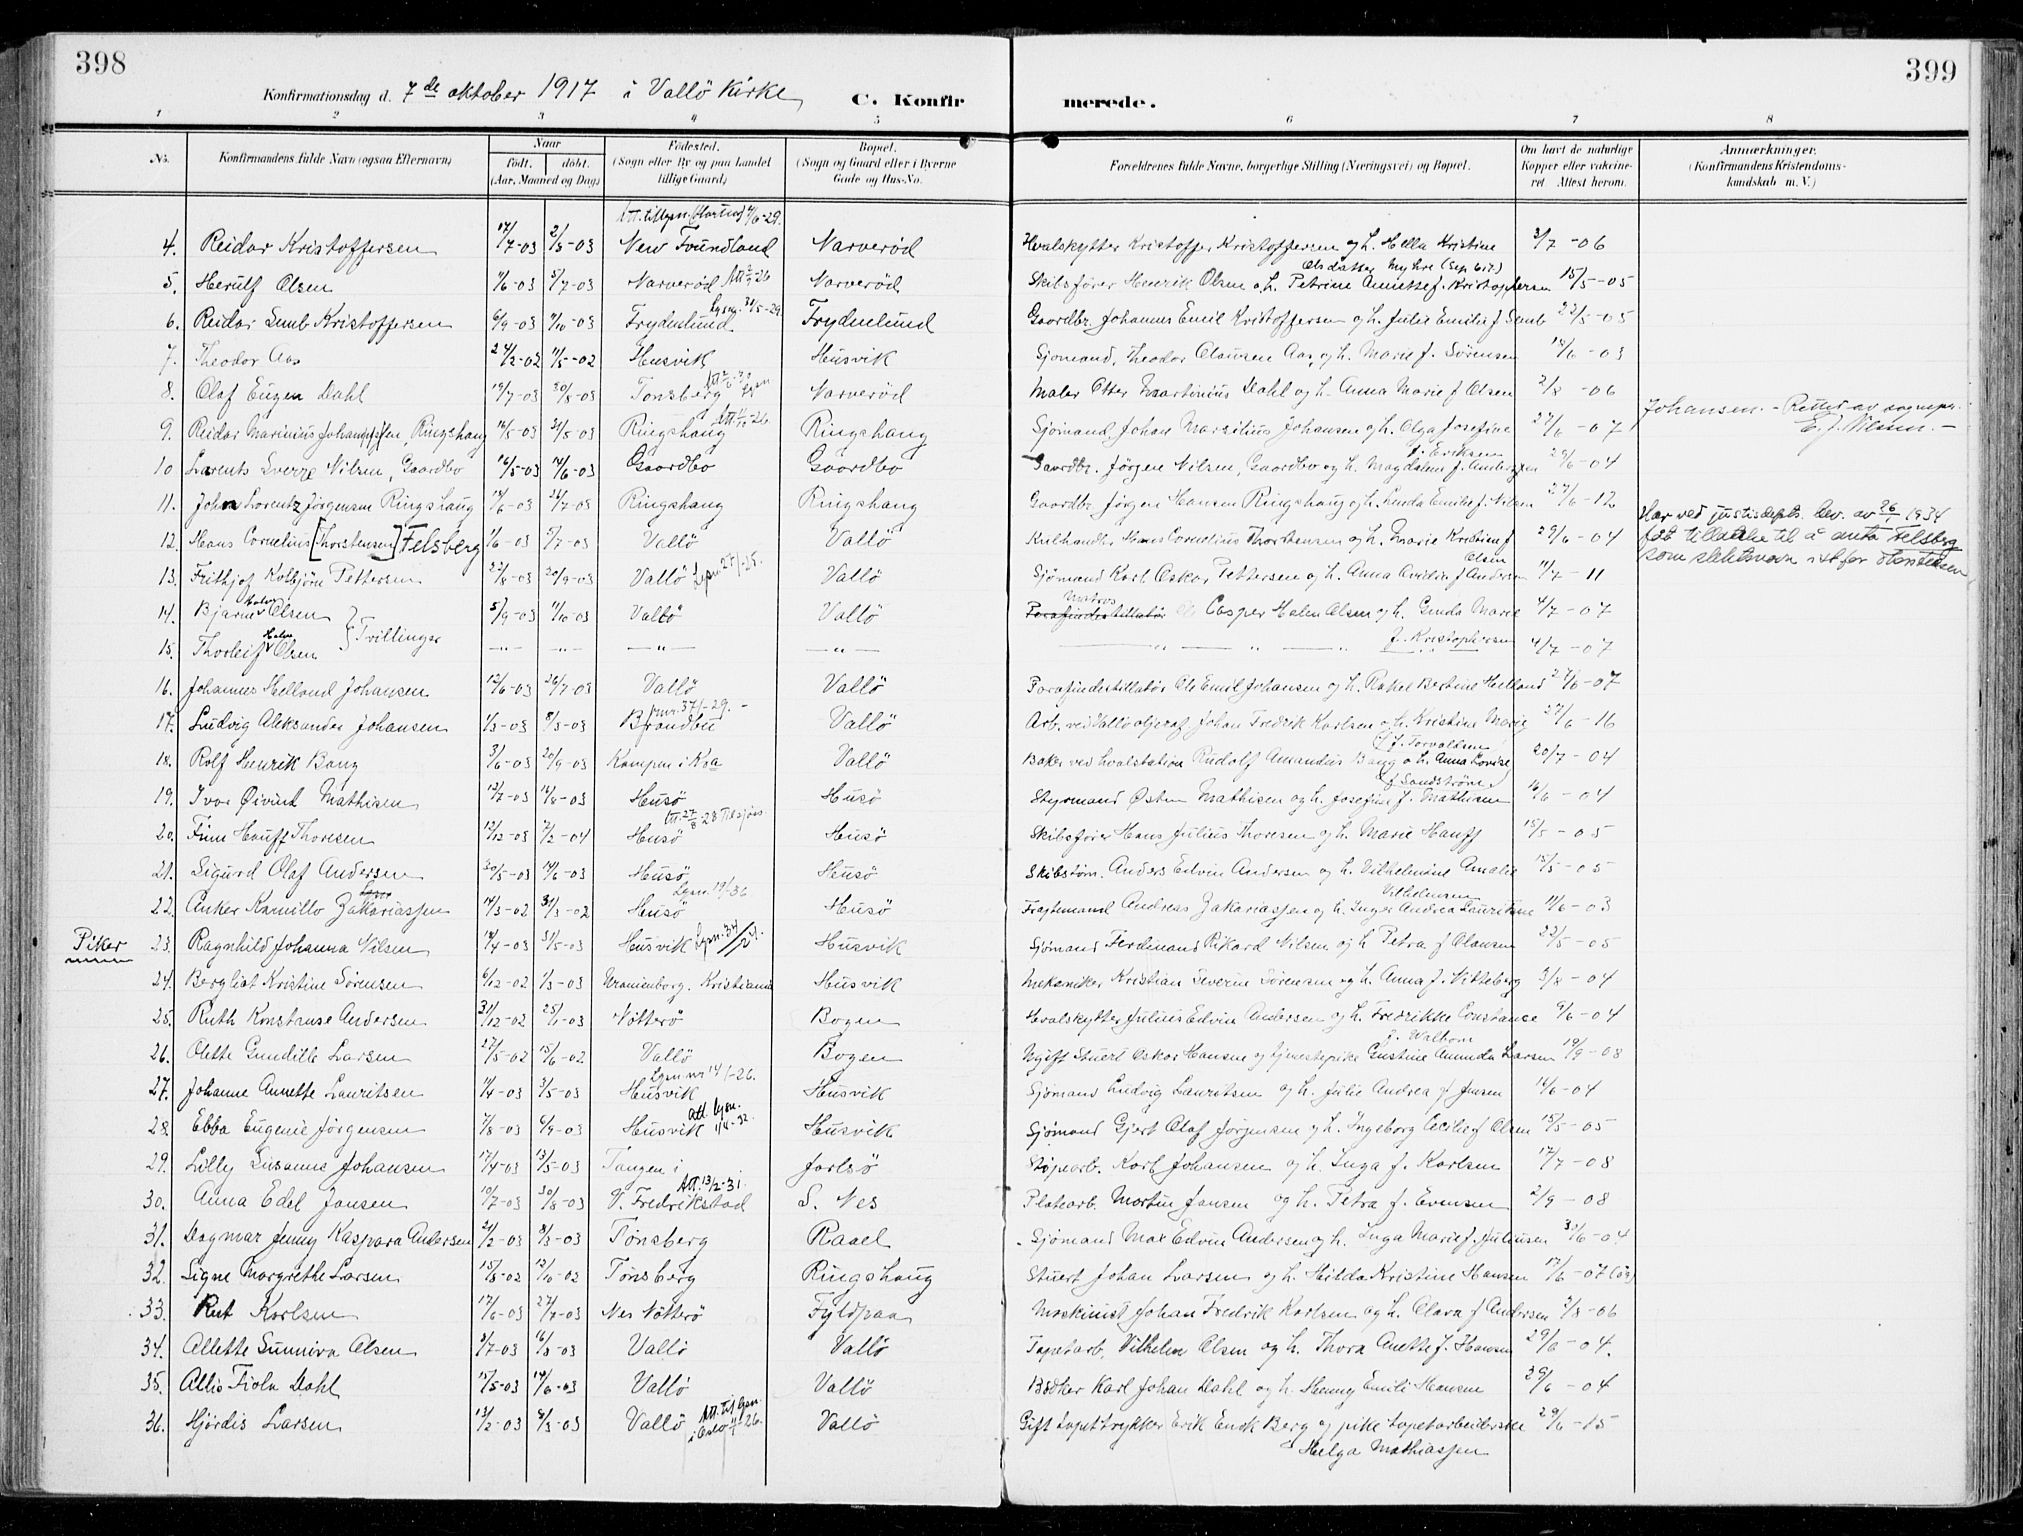 398
399
Konfirmationsdag d. 7de oktober 1917 i Vallö Kirke
C. Konfirmerede.
1 2 3 4 5 6 7 8
No. Konfirmandens fulde Navn (ogsaa Efternavn) Naar født. døbt. (Aar, Maaned og Dag) Fødested. (Sogn eller By og paa Landet tillige Gaard) Bopæl. (Sogn og Gaard eller i Byerne Gade og Hus-No. Forældrenes fulde Navne, borgerlige Stilling (Næringsvei) og Bopæl. Om havt de naturlige Kopper eller vakcineret. Attest herom. Anmærkninger. (Konfirmandens Kristendomskundskab m. V.)
4. Reidar Kristoffersen 17/7-03 2/8-03 New Foundland Narverød Hvalskytter Kristoffer Kristoffersen og h. Hella Kristine 3/7-06
Olsdatter Myhre (Sep. b.17.)
5. Herulf Olsen 11/6-03 5/7-03 Narverød Narverød Skibsfører Henrik Olsen o.h. Petrine Annette f. Kristoffersen 15/5-05
6. Reidar Semb Kristoffersen 6/9-03 11/10-03 Frydenlund Lysn. 31/5-29 Frydenlund Gaardbr. Johannes Emil Kristoffersen og h. Julie Emilie f. Semb 22/5-05
7. Theodor Aas 24/2-02 11/5-02 Husvik Husvik Sjømand, Theodor Clausen Aas og h. Marie f. Sørensen 18/6-03
8. Olaf Eugen Dahl 19/7-03 30/8-03 Tønsberg Narverød Maler Otter Martinius Dahl og h. Anna Marie f. Olsen 2/8-06
9. Reidar Marinius Johannessen, Ringshaug 14/5-03 31/5-03 Ringshaug Ringshaug Sjømand, Johan Marsilius Johansen og h. Olga Josefine 27/6-07 Johansen. - Rettet av sogneper. E. J. Nilssen. -
f. Eriksen
10 Larents Sverre Nilsen, Gaardbo 16/5-03 14/6-03 Gaardbo Gaardbo Gaardbr. Jørgen Nilsen, Gaardbo og h. Magdalene f. Andersen 29/6-04
11. John Lorentz Jørgensen Ringshaug 14/6-03 26/7-03 Ringshaug Ringshaug Gaardbr. Jørgen Hansen Ringshaug og h. Linda Emilie f. Nilsen 27/6-12
12. Hans Cornelius [Thorstensen] Felsberg 1/6-03 5/7-03 Vallö Vallö Kulhandler Hans Cornelius Thorstensen og h. Marie Kristine f. Olsen 29/6-04 Har ved justisdepts. bev. av 26/1 1934 fåt tillatelse til å anta Felsberg som slektsnavn istfor Torstensen
13. Frithjof Kolbjörn Pettersen 22/8-03 20/9-03 Vallö Lysn. 27/-25. Vallö Sjømand Karl Oskar Pettersen og h. Anna Amilie f. Andersen 11/7-11
14. Bjarne Holm Olsen } Tvillinger 5/9-03 11/10-03 Vallö Vallö Matros Casper Holm Olsen og h. Gunda Marie 4/7-07
15. Thorleif Holm Olsen -"- -"- -"- -"- f. Kristophersen 4/7-07
16. Johannes Helland Johansen 12/6-03 26/7-03 Vallö Vallö Parafindestillatör Ole Emil Johansen og h. Rakel Bertine Helland 27/6-07
17. Ludvig Aleksander Johansen 1/3-03 8/3-03 Brandbu Vallö Arb. ved Vallö oljeraf. Johan Fredrik Karlsen o.h. Kristine Marie 27/6-16
f. Torvaldsen
18. Rolf Henrik Bang 3/6-03 20/9-03 Kampen i Kra Vallö Baker ved hvalstation Rudolf Amandus Bang o.h. Anna Lovise 20/7-04
f. Sandstrøm
19. Ivar Øivind Mathisen 12/7-03 14/8-03 Husö Husö Styrmand Østen Mathisen og h. Josefine f. Mathisen 16/6-04
20. Finn Hauff Thoresen 12/12-03 7/2-04 Husö Husö Skibsfører Hans Julius Thoresen og h. Marie Hauff 15/5-05
21. Sigurd Olaf Andersen 30/5-03 14/6-03 Husö Husö Skibstøm. Anders Edvin Andersen og h. Vilhelmine Amalie 15/5-05
Vilhelmsen
22. Anker Kamillo Zakariassen 14/3-02 31/3-02 Husö Lysn. 19/-36 Husö Fragtemand Andreas Zakariassen og h. Inger Andrea Lauritsine 11/6-03
Piker 23. Ragnhild Johanna Nilsen 14/4-03 31/5-03 Husvik Husvik Sjömand Ferdinand Rikard Nilsen og h. Petra f. Olausen 22/5-05
24. Bergliot Kristine Sørensen 6/12-02 1/3-03 Uranienborg, Kristiania Husvik Mekaniker Kristian Severin Sörensen og h. Anna f. Vitteberg 3/8-04
25. Ruth Konstanse Andersen 31/12-02 25/1-03 Nötterö Bogen Hvalskytter Julius Edvin Andersen og h. Fredrikke Constance 9/6-04
f. Walbom
26. Olette Gundille Larsen 27/5-02 15/6-02 Vallö Bogen Ugift Stuert Oskar Hansen og tjenestepike Gustine Amunda Larsen 19/9-08
27. Johanne Annette Lauritsen 11/4-03 3/5-03 Husvik Lysn. nr 14/-26. Husvik Sjömand Ludvig Lauritsen og h. Julie Andrea f. Jensen 14/6-04
28. Ebba Eugenie Jørgensen 7/8-03 6/9-03 Husvik Att. lysn. 1/4-32. Husvik Sjömand Gjert Olaf Jørgensen og h. Ingeborg Cecilie f. Olsen 15/5-05
29. Lilly Susanne Johansen 17/4-03 13/5-03 Tangen i Jarlsö Støpearb. Karl Johansen og h. Inga f. Karlsen 17/7-08
30. Anna Edel Jansen 10/7-03 30/8-03 V. Fredrikstad Att. 13/2-31. S. Nes Platearb. Martin Jansen og h. Petra f. Evensen 2/9-08
31. Dagmar Jenny Kaspara Andersen 21/2-03 8/3-03 Tönsberg Raael Sjømand Max Edvin Andersen og h. Inga Marie f. Juliusen 30/6-04
32. Signe Margrethe Larsen 15/8-02 12/10-02 Tönsberg Ringshaug Stuert Johan Larsen og h. Hilda Kristine Hansen 17/6-07
33. Rut Karlsen 17/6-03 27/7-03 Nes Nötterö Fyldpaa Maskinist Johan Fredrik Karlsen og h. Clara f. Andersen 2/8-06
34. Allette Sunniva Olsen 3/7-03 16/8-03 Vallö Vallö Tapetarb. Vilhelm Olsen og h. Thora Anette f. Hansen 29/6-04.
35. Allis Fiola Dahl 15/5-03 14/6-03 Vallö Vallö Bødker Karl Johan Dahl og h. Henny Emilie Hansen 29/6-04
36. Hjördis Larsen 13/2-03 8/3-03 Vallö Att. til lysn. i Oslo Vallö Gift tapettrykker Erik Enok Berg og pike tapetarbeiderske 29/6-15
Helga Mathiassen